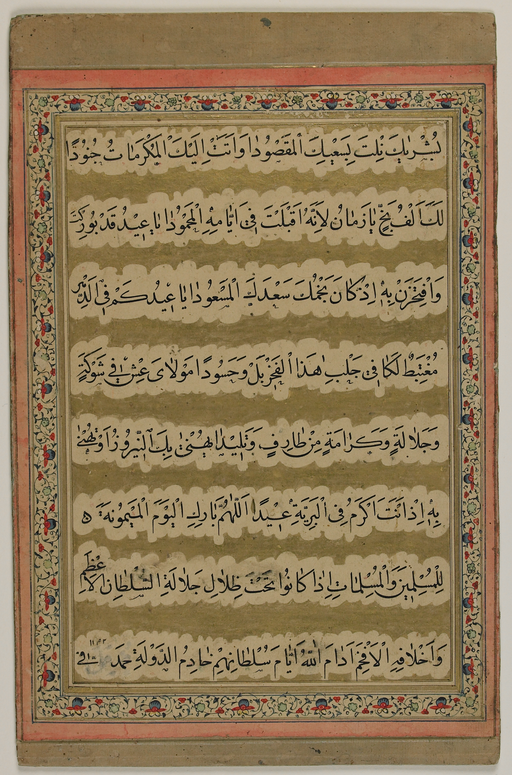 بُشْرَيكَ نِلْتَ بِسَعْيِكَ الْمَقْصُودَا وَاَتَتْ اِلَيْكَ الْمَكْرُمَاتُ جُنُودًا
لَكَ اَلْفُ بَخٍّ يَازَمَانُ لِاَنَّهُ اَقْبَلْتَ فِي اَيَّامِهِ الْمَحْمُودَا يَاعِيدُ قَدْ بُورِكْتَ
وَافْتَخِرَنْ بِهِ اِذْ كَانَ نَجْمُكَ سَعْدَكَ الْمَسْعُودَا يَا عِيدُ كَمْ فِي الدَّهْرِ
مُغْتَبِطٌ لَكَا فِي جَلْبِ هٰذَا الْفَخْرِ بَلْ وَحَسُودًا مَوْلَايَ عِشْ فِي شَوْكَةٍ
وَجَلَالَةٍ وَكَرَامَةٍ مِنْ طَارِفٍ وَتَلِيدًا يَهْنِي بِكَ النَّيْرُوزُ اَوْ تُهْنَى
بِهِ اِذْ اَنْتَ اَكْرَمُ فِي الْبَرِيَّةِ عِيدًا اَللّٰهُمَّ بَارِكِ الْيَوْمَ الْمَيْمُونَةَ ه
لِلْمُسْلِمِينَ وَالْمُسْلِمَاتِ اِذَا كَانُوا تَحْتَ ظِلَالِ جَلَالَةِ السُّلْطَانِ الْاَعْظَمِ
وَاَخْلَافِهِ الْاَفْخَمِ اَدَامَ اللّٰهُ اَيَّامَ سُلْطَانِهِمْ خَادِمُ الدَّوْلَةِ حمد في